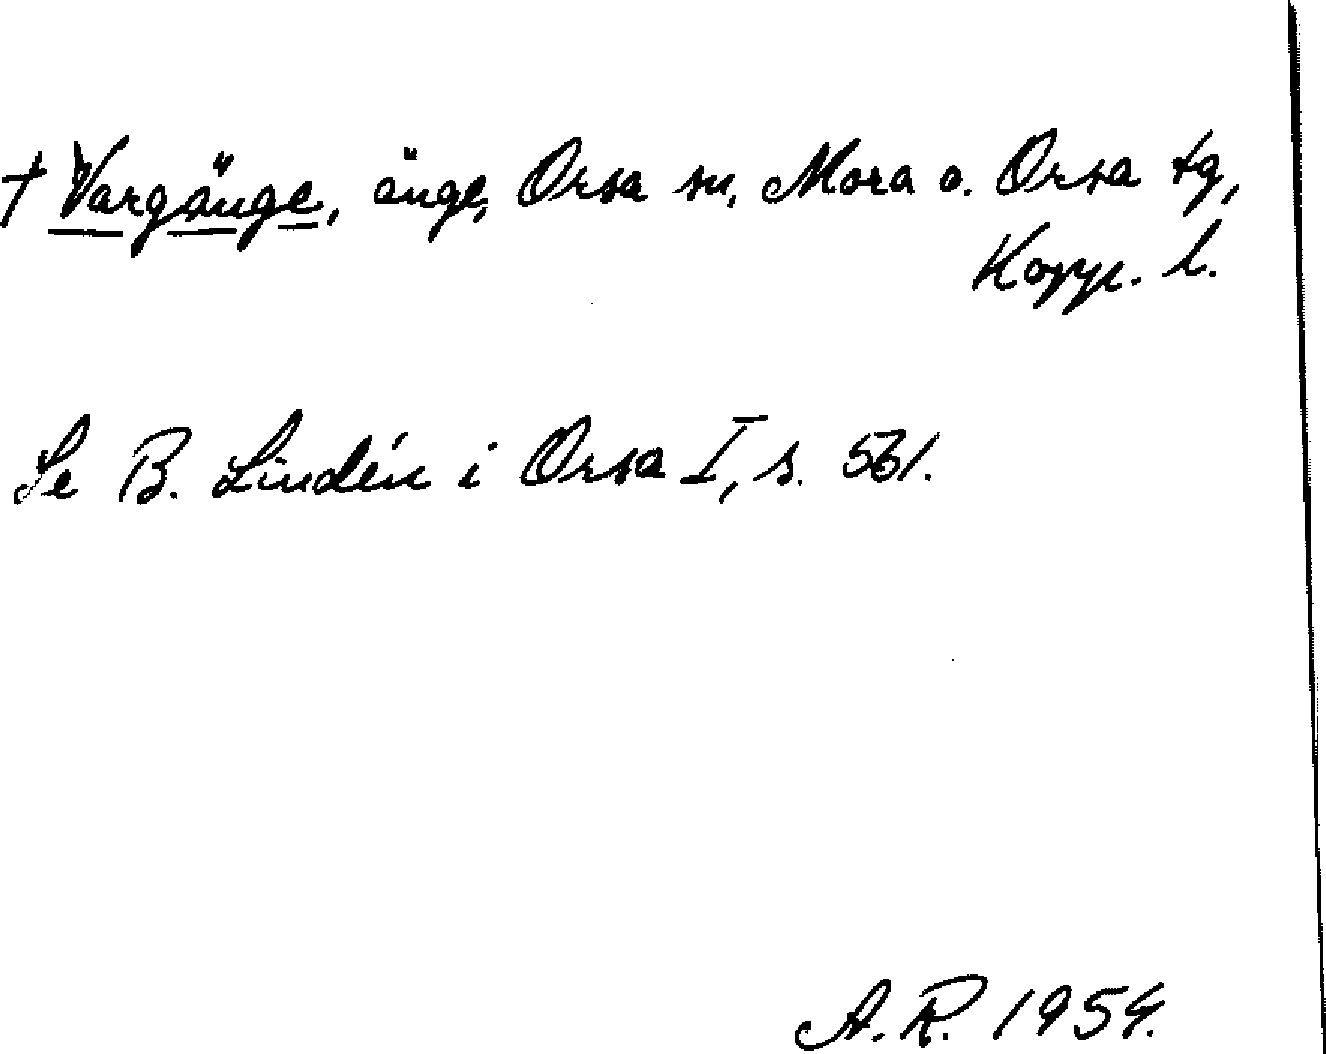 † Vargänge, änge, Orsa sn, Mora o. Orsa tg,
Kopp. l.
Se B. Lindén i Orsa I, s. 561.
A. R. 1954.